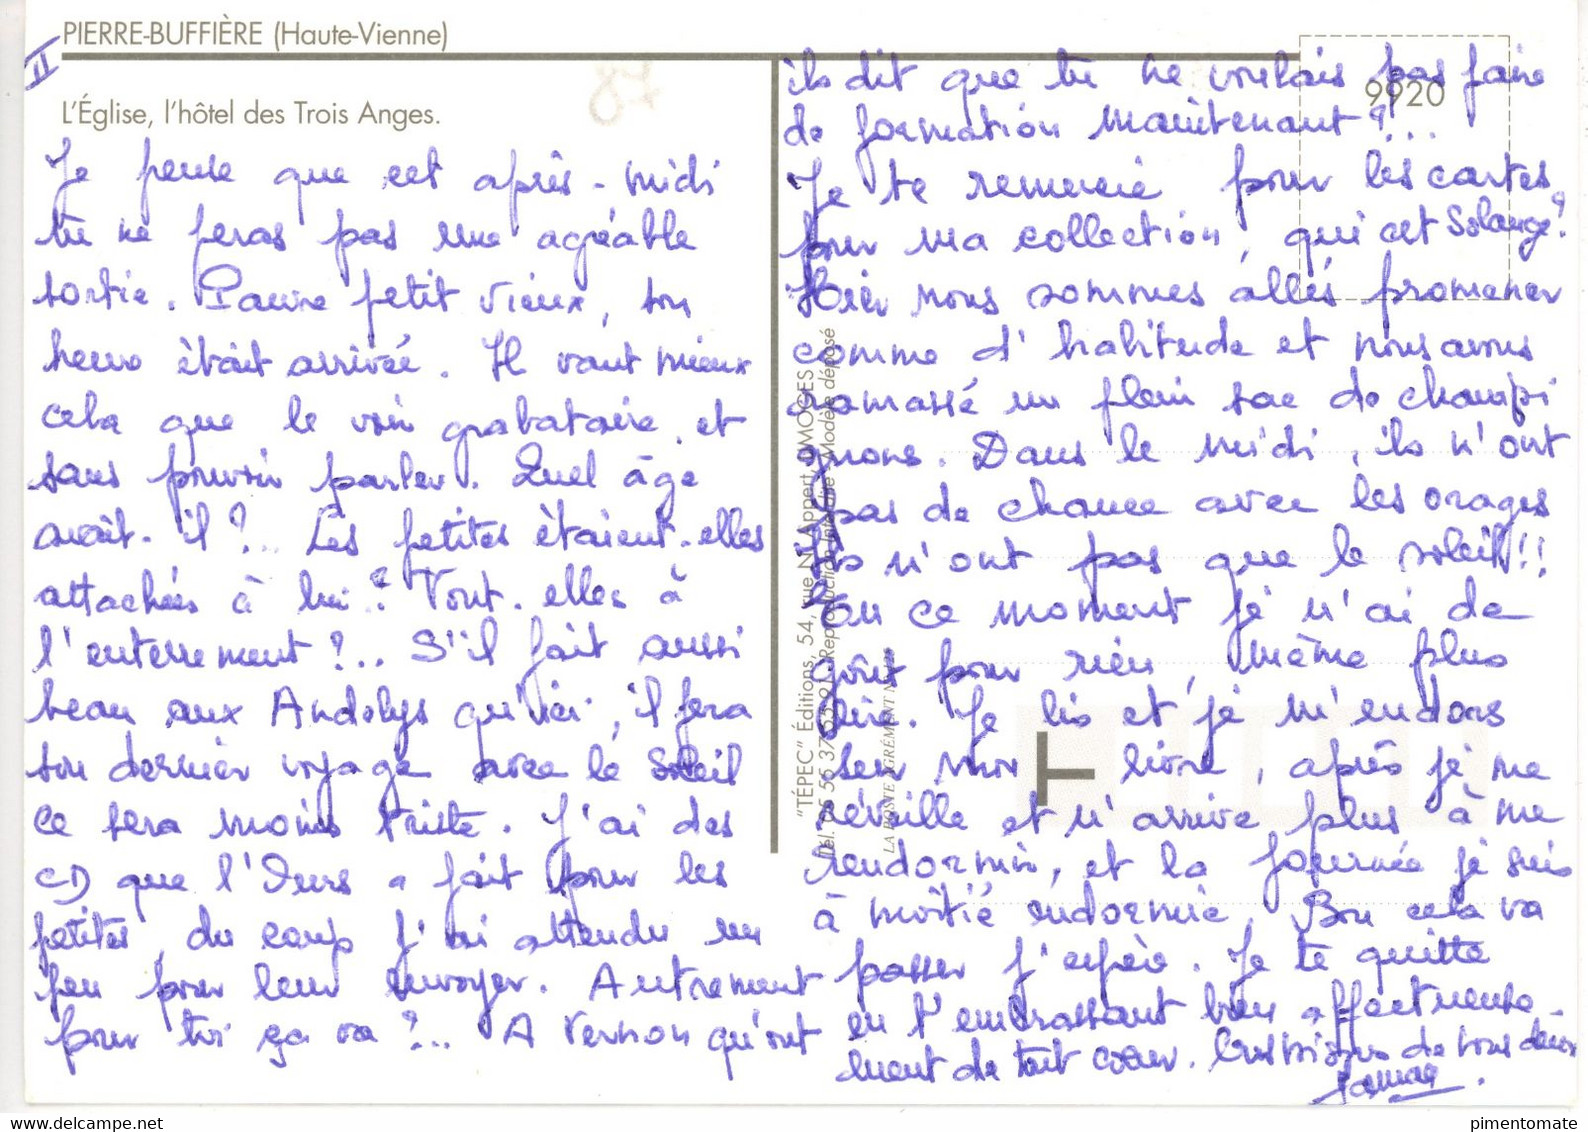 PIERRE-BUFFIÈRE (Haute-Vienne)
II
87
L'Église, l'hôtel des Trois Anges.
9920
Je pense que cet après-midi
tu ne feras pas une agréable
sortie. Pauvre petit vieux, son
heure était arrivée. Il vaut mieux
cela que le voir grabataire, et
sans pouvoir parler. Quel âge
avait-il ?.. Les petites étaient-elles
attachées à lui ? Vont-elles à
l'enterrement ?.. S'il fait aussi
beau aux Andelys qu'ici, il fera
son dernier voyage avec le soleil
ce sera moins triste. J'ai des
CD que l'Ours a fait pour les
petites, du coup j'ai attendu un
peu pour leur envoyer. Autrement
pour toi ça va ?.. A Vernon qu'ont
ils dit que tu ne voulais pas faire
de formation maintenant ?...
Je te remercie pour les cartes
pour ma collection, qui est Solange ?
Hier nous sommes allés promener
comme d'habitude et nous avons
ramassé un plein sac de champi
gnons. Dans le midi, ils n'ont
pas de chance avec les orages
ils n'ont pas que le soleil !!
En ce moment je n'ai de
goût pour rien, même plus
lire. Je lis et je m'endors
sur mon livre, après je me
réveille et n'arrive plus à me
rendormir, et la journée je suis
à moitié endormie. Bon cela va
passer j'espère. Je te quitte
en t'embrassant bien affectueuse
ment de tout cœur. Gros bisous de nous deux
"TÉPEC" Éditions, 54, rue N. Appert, LIMOGES
Reproduction interdite - Modèle déposé
LA POSTE AGRÉMENT N°
pimentomate